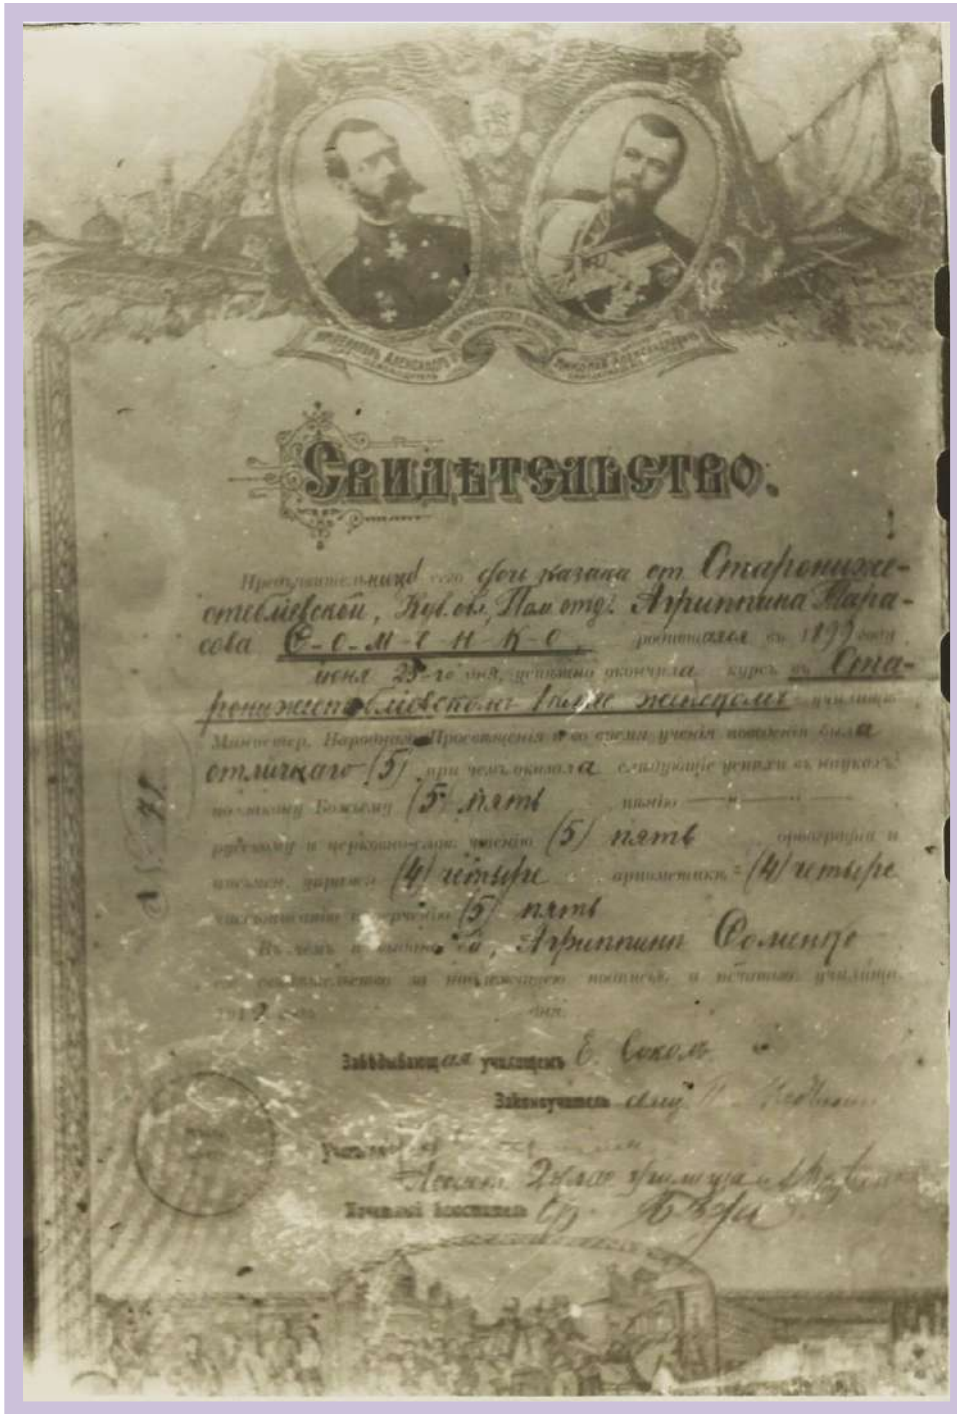 ИМПЕРАТОРЪ АЛЕКСАНДРЪ II
НИКОЛАЙ АЛЕКСАНДРОВИЧЪ
Свидѣтельство.
Предъявительница сего дочь казака ст Старониже-
стебліевской, Куб. обл, Там. отд. Агриппина Тара-
сова С-о-м-е-н-к-о родившаяся въ 1899 году
июня 25-го дня, успѣшно окончила курсъ въ Ста-
ронижестебліевскомъ женскомъ училищѣ
Министер. Народнаго Просвѣщенія и во время ученія поведенія была
отличнаго (5) при чемъ оказала слѣдующіе успѣхи въ наукахъ:
по закону Божьему (5) пять пѣнію
русскому и церковно-слав. чтенію (5) пять орѳографіи и
письмен. (4) четыре ариѳметикѣ (4) четыре
чистописанію и черченію (5) пять
Въ чемъ и выдано ей, Агриппинѣ Соменко
сіе свидѣтельство за надлежащею подписью и печатью училища.
191 года дня.
Завѣдывающая училищемъ Е. Соколъ
Законоучитель свящ.
училища
Почетный Блюститель